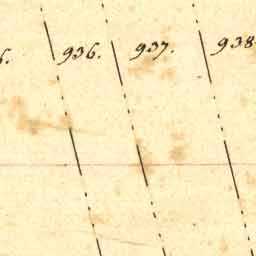 936. 937. 938